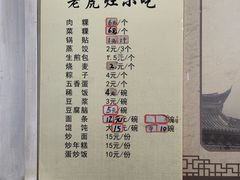 老虎灶小吃
肉粿 6元/个
菜粿 6元/个
锅贴
蒸饺 2元/3个
生煎包 1.5元/个
烧麦 2元/个
粽子 4元/个
五香蛋 2元/个
稀饭 4元/碗
豆浆 3元/碗
豆腐脑 5元/碗
面条 12元/碗
馄饨 大15元/碗 10碗
炒面 15元/份
炒年糕 15元/份
蛋炒饭 10元/份